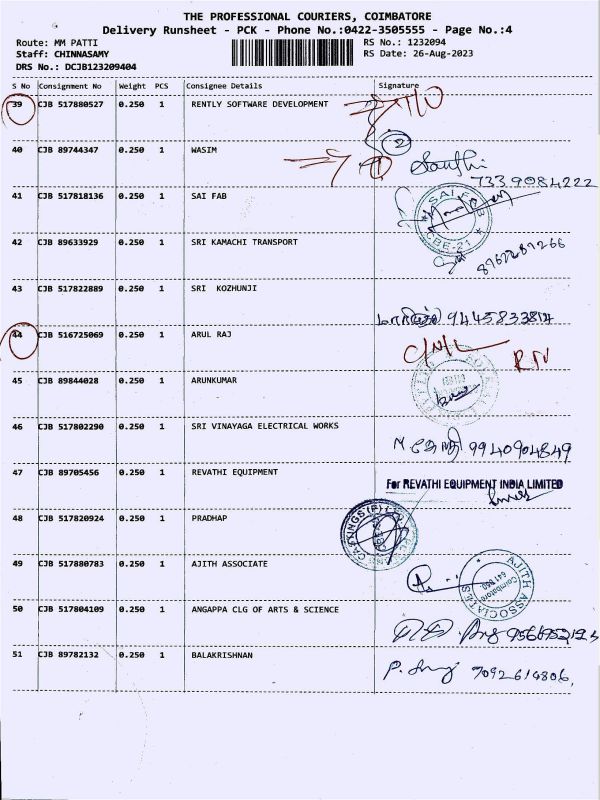 THE PROFESSIONAL COURIERS, COIMBATORE
Delivery Runsheet - PCK - Phone No.:0422-3505555 - Page No.:4
Route: MM PATTI
RS No.: 1232094
Staff: CHINNASAMY
RS Date: 26-Aug-2023
DRS No.: DCJB123209404
S No Consignment No Weight PCS Consignee Details Signature
39 CJB 517880527 0.250 1 RENTLY SOFTWARE DEVELOPMENT
2
40 CJB 89744347 0.250 1 WASIM
Santhi
7339084222
41 CJB 517818136 0.250 1 SAI FAB
SAI FAB
CBE-21
42 CJB 89633929 0.250 1 SRI KAMACHI TRANSPORT
43 CJB 517822889 0.250 1 SRI KOZHUNJI
44 CJB 516725069 0.250 1 ARUL RAJ
C/N/L
45 CJB 89844028 0.250 1 ARUNKUMAR
46 CJB 517802290 0.250 1 SRI VINAYAGA ELECTRICAL WORKS
9940904849
47 CJB 89705456 0.250 1 REVATHI EQUIPMENT
For REVATHI EQUIPMENT INDIA LIMITED
48 CJB 517820924 0.250 1 PRADHAP
49 CJB 517880783 0.250 1 AJITH ASSOCIATE
AJITH ASSOCIATES
Coimbatore
50 CJB 517804109 0.250 1 ANGAPPA CLG OF ARTS & SCIENCE
51 CJB 89782132 0.250 1 BALAKRISHNAN
7092614806